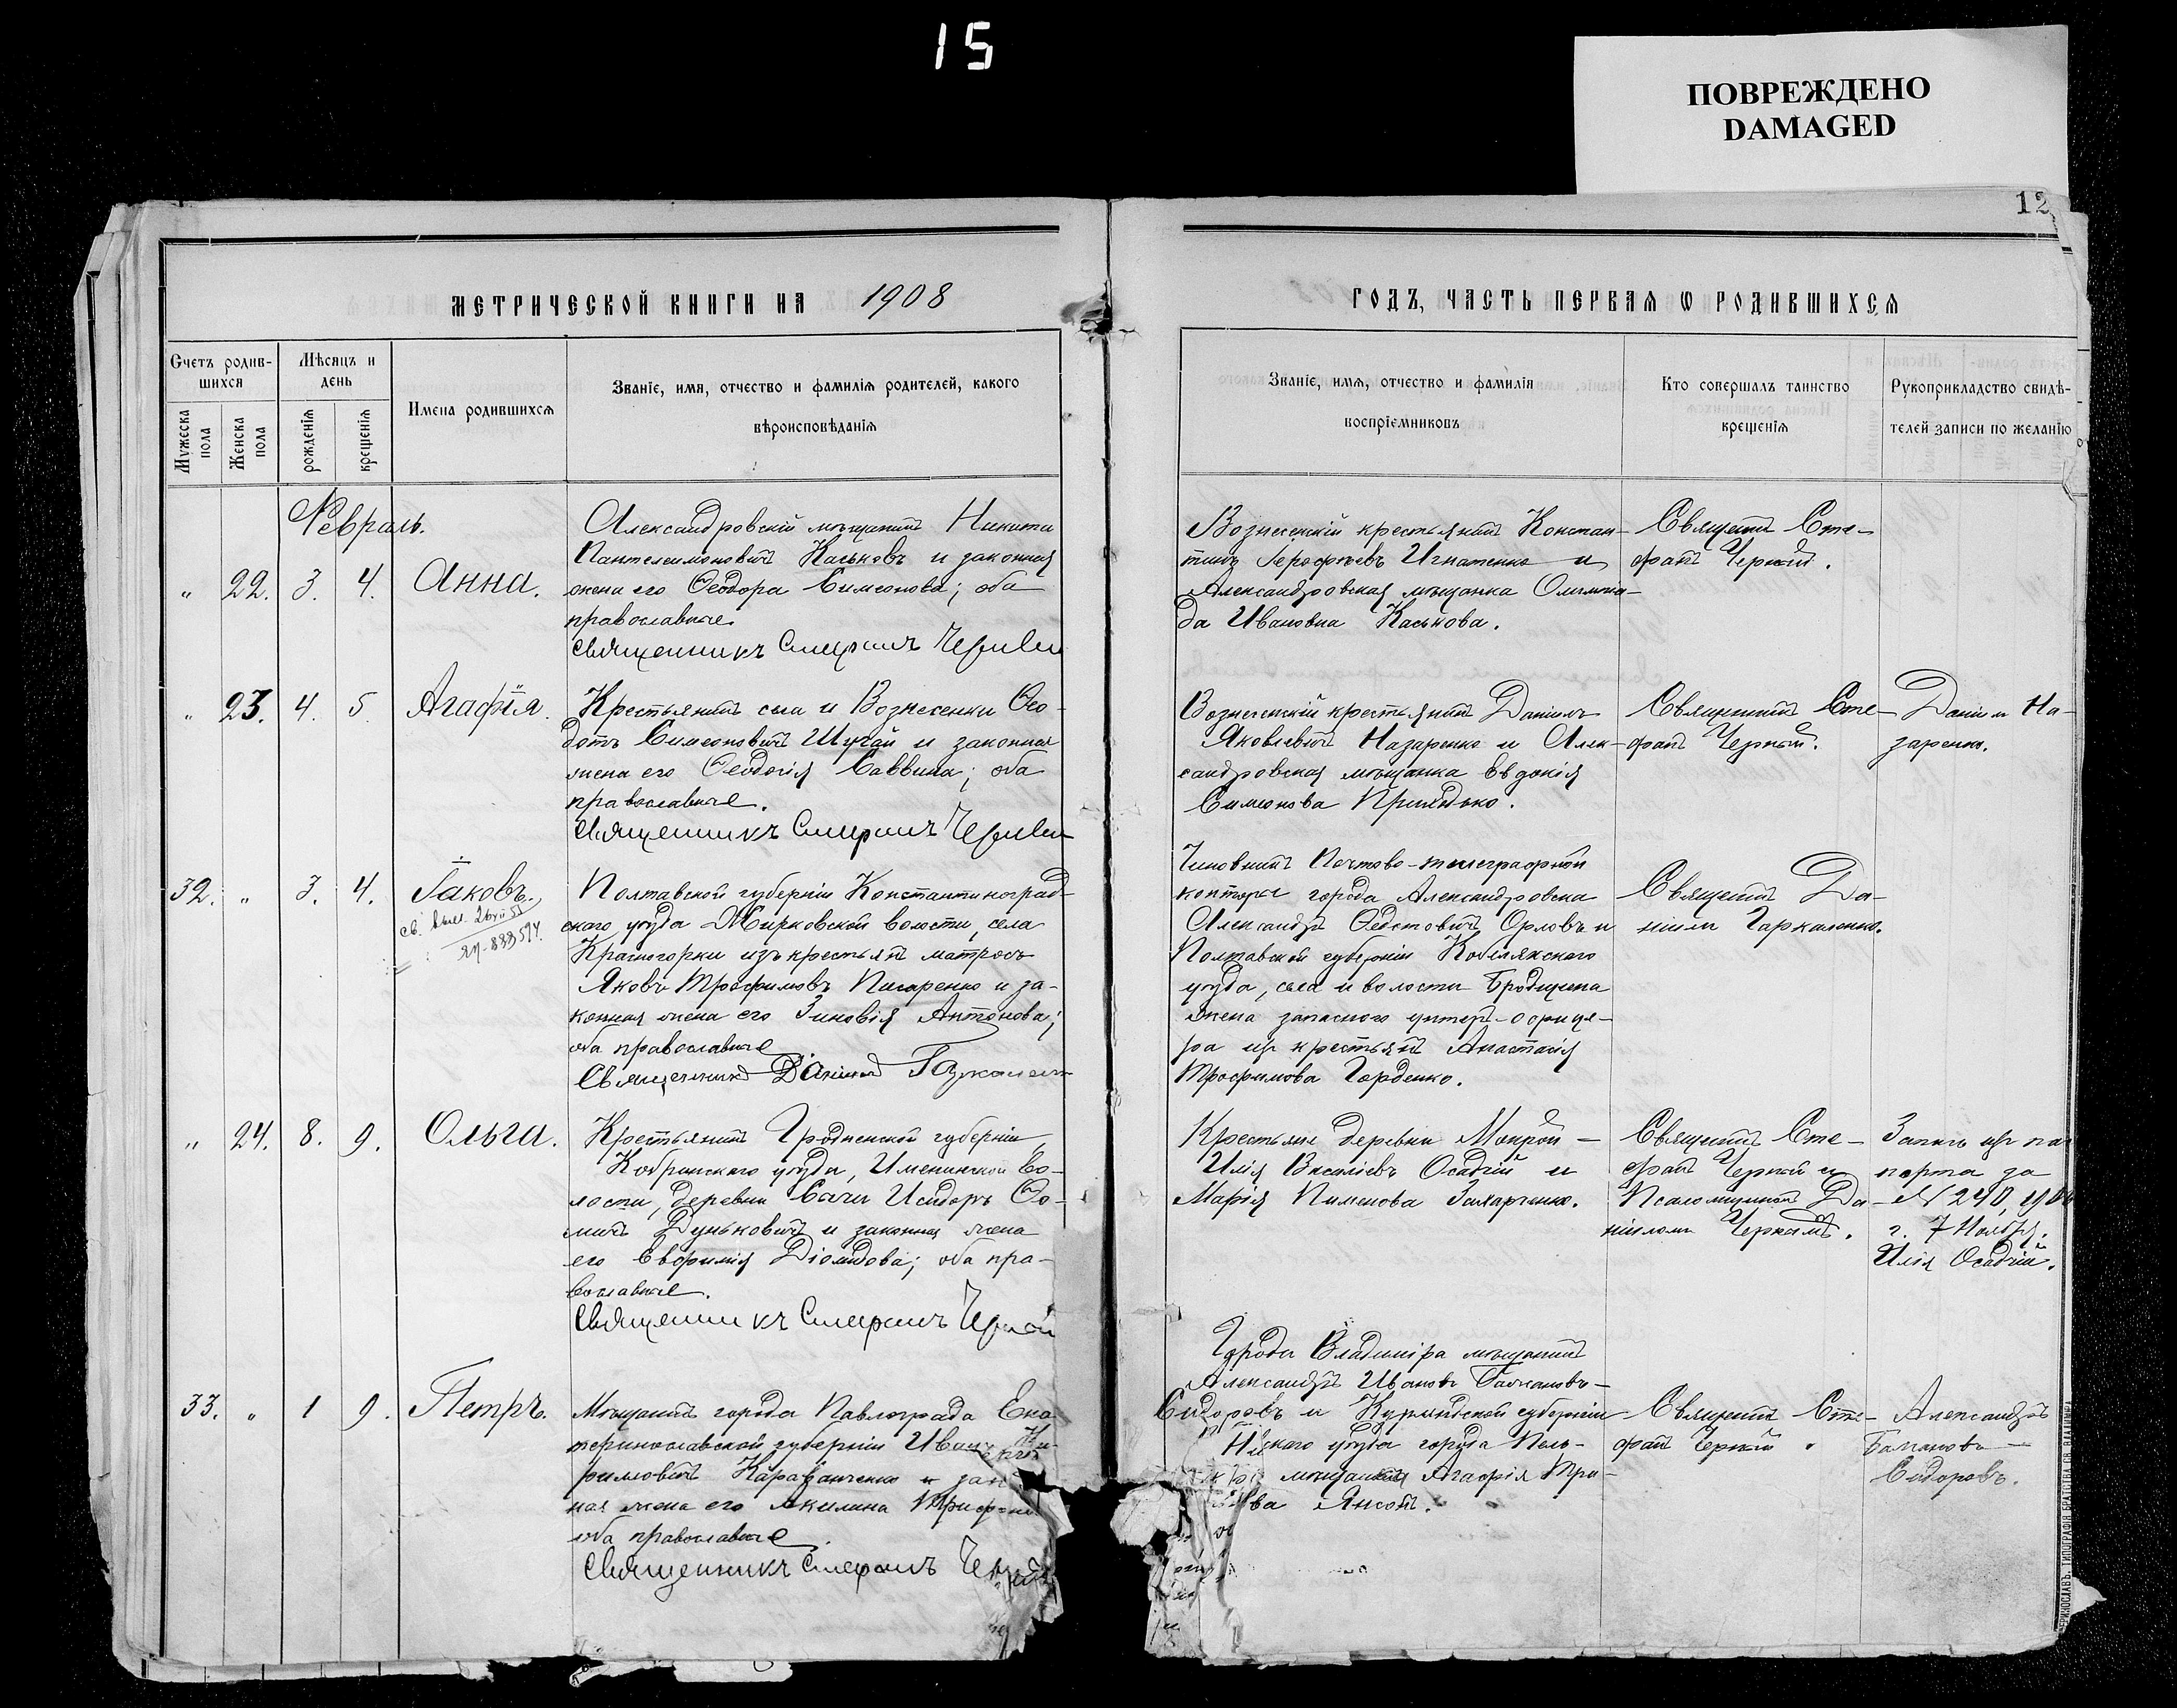 15
ПОВРЕЖДЕНО
DAMAGED
12
МЕТРИЧЕСКОЙ КНИГИ НА 1908
ГОДЪ, ЧАСТЬ ПЕРВАЯ Ѡ РОДИВШИХСЯ
Счетъ родив-
шихся
Мѣсяцъ и
день
Мужеска
пола
Женска
пола
рожденія
крещенія
Имена родившихся
Званіе, имя, отчество и фамилія родителей, какого
вѣроисповѣданія
Званіе, имя, отчество и фамилія
воспріемниковъ
Кто совершалъ таинство
крещенія
Рукоприкладство свидѣ-
телей записи по желанію
Февраль.
" 22. 3. 4. Анна.
Александровскій мѣщанинъ Никита
Пантелеимоновичъ Каськовъ и законная
жена его Ѳеодора Симеонова; оба
православные.
Священникъ Стефанъ
Вознесенскій крестьянинъ Констан-
тинъ Іерофеевъ Игнатенко и
Александровская мѣщанка Олимпіа-
да Ивановна Каськова.
Священникъ Сте-
фанъ Черный.
" 23. 4. 5. Агафія.
Крестьянинъ села Вознесенки Ѳео-
дотъ Симеоновичъ Шугай и законная
жена его Ѳеодосія Саввина; оба
православные.
Священникъ Стефанъ
Вознесенскій крестьянинъ Даніилъ
Яковлевичъ Назаренко и Алек-
сандровская мѣщанка Евдокія
Симеонова Приядько.
Священникъ Сте-
фанъ Черный.
Даніилъ На-
заренко.
32. " 3. 4. Іаковъ.
св. выд.
Полтавской губерніи Константиноград-
скаго уѣзда волости, села
Красногорки изъ крестьянъ матросъ
Яковъ Трофимовъ Писаренко и за-
конная жена его Зиновія Антонова;
оба православные
Священникъ Даніилъ
Чиновникъ Почтово-телеграфной
конторы города Александровска
Александръ Ѳедотовичъ Орловъ и
Полтавской губерніи Кобелякскаго
уѣзда, села и волости Бродщина
жена запасного унтеръ-офице-
ра изъ крестьянъ Анастасія
Трофимова Горденко.
Священникъ Да-
ніилъ Гаркаленко.
" 24. 8. 9. Ольга.
Крестьянинъ Гродненской губерніи,
Кобринскаго уѣзда, Именинской Во-
лости, деревни Сачи Исидоръ Ѳо-
мичъ Дуньковичъ и законная жена
его Евфимія Діомидова; оба пра-
вославные.
Священникъ Стефанъ Черный
Крестьяне деревни Мокрой -
Илія Василіевъ Осадчій и
Марія Пименова Захарченко.
Священникъ Сте-
фанъ Черный и
Псаломщикъ Да-
ніиломъ Чернымъ.
за
№ 240,
г. 7 Ноября.
Илія Осадчій.
33. " 1 9. Петръ.
Мѣщанинъ города Павлограда Ека-
теринославской губерніи Иванъ
Караванченко и
ная жена его Акилина
оба православные.
Священникъ Стефанъ
Города Владиміра мѣщанинъ
Александръ Ивановъ Балкановъ-
Сидоровъ и Курляндской губерніи
уѣзда города
мѣщанка Агафія
Янсонъ.
Священникъ Сте-
фанъ Черный.
Александръ
Сидоровъ.
ТИПОГРАФІЯ БРАТСТВА СВ. ВЛАДИМІРА